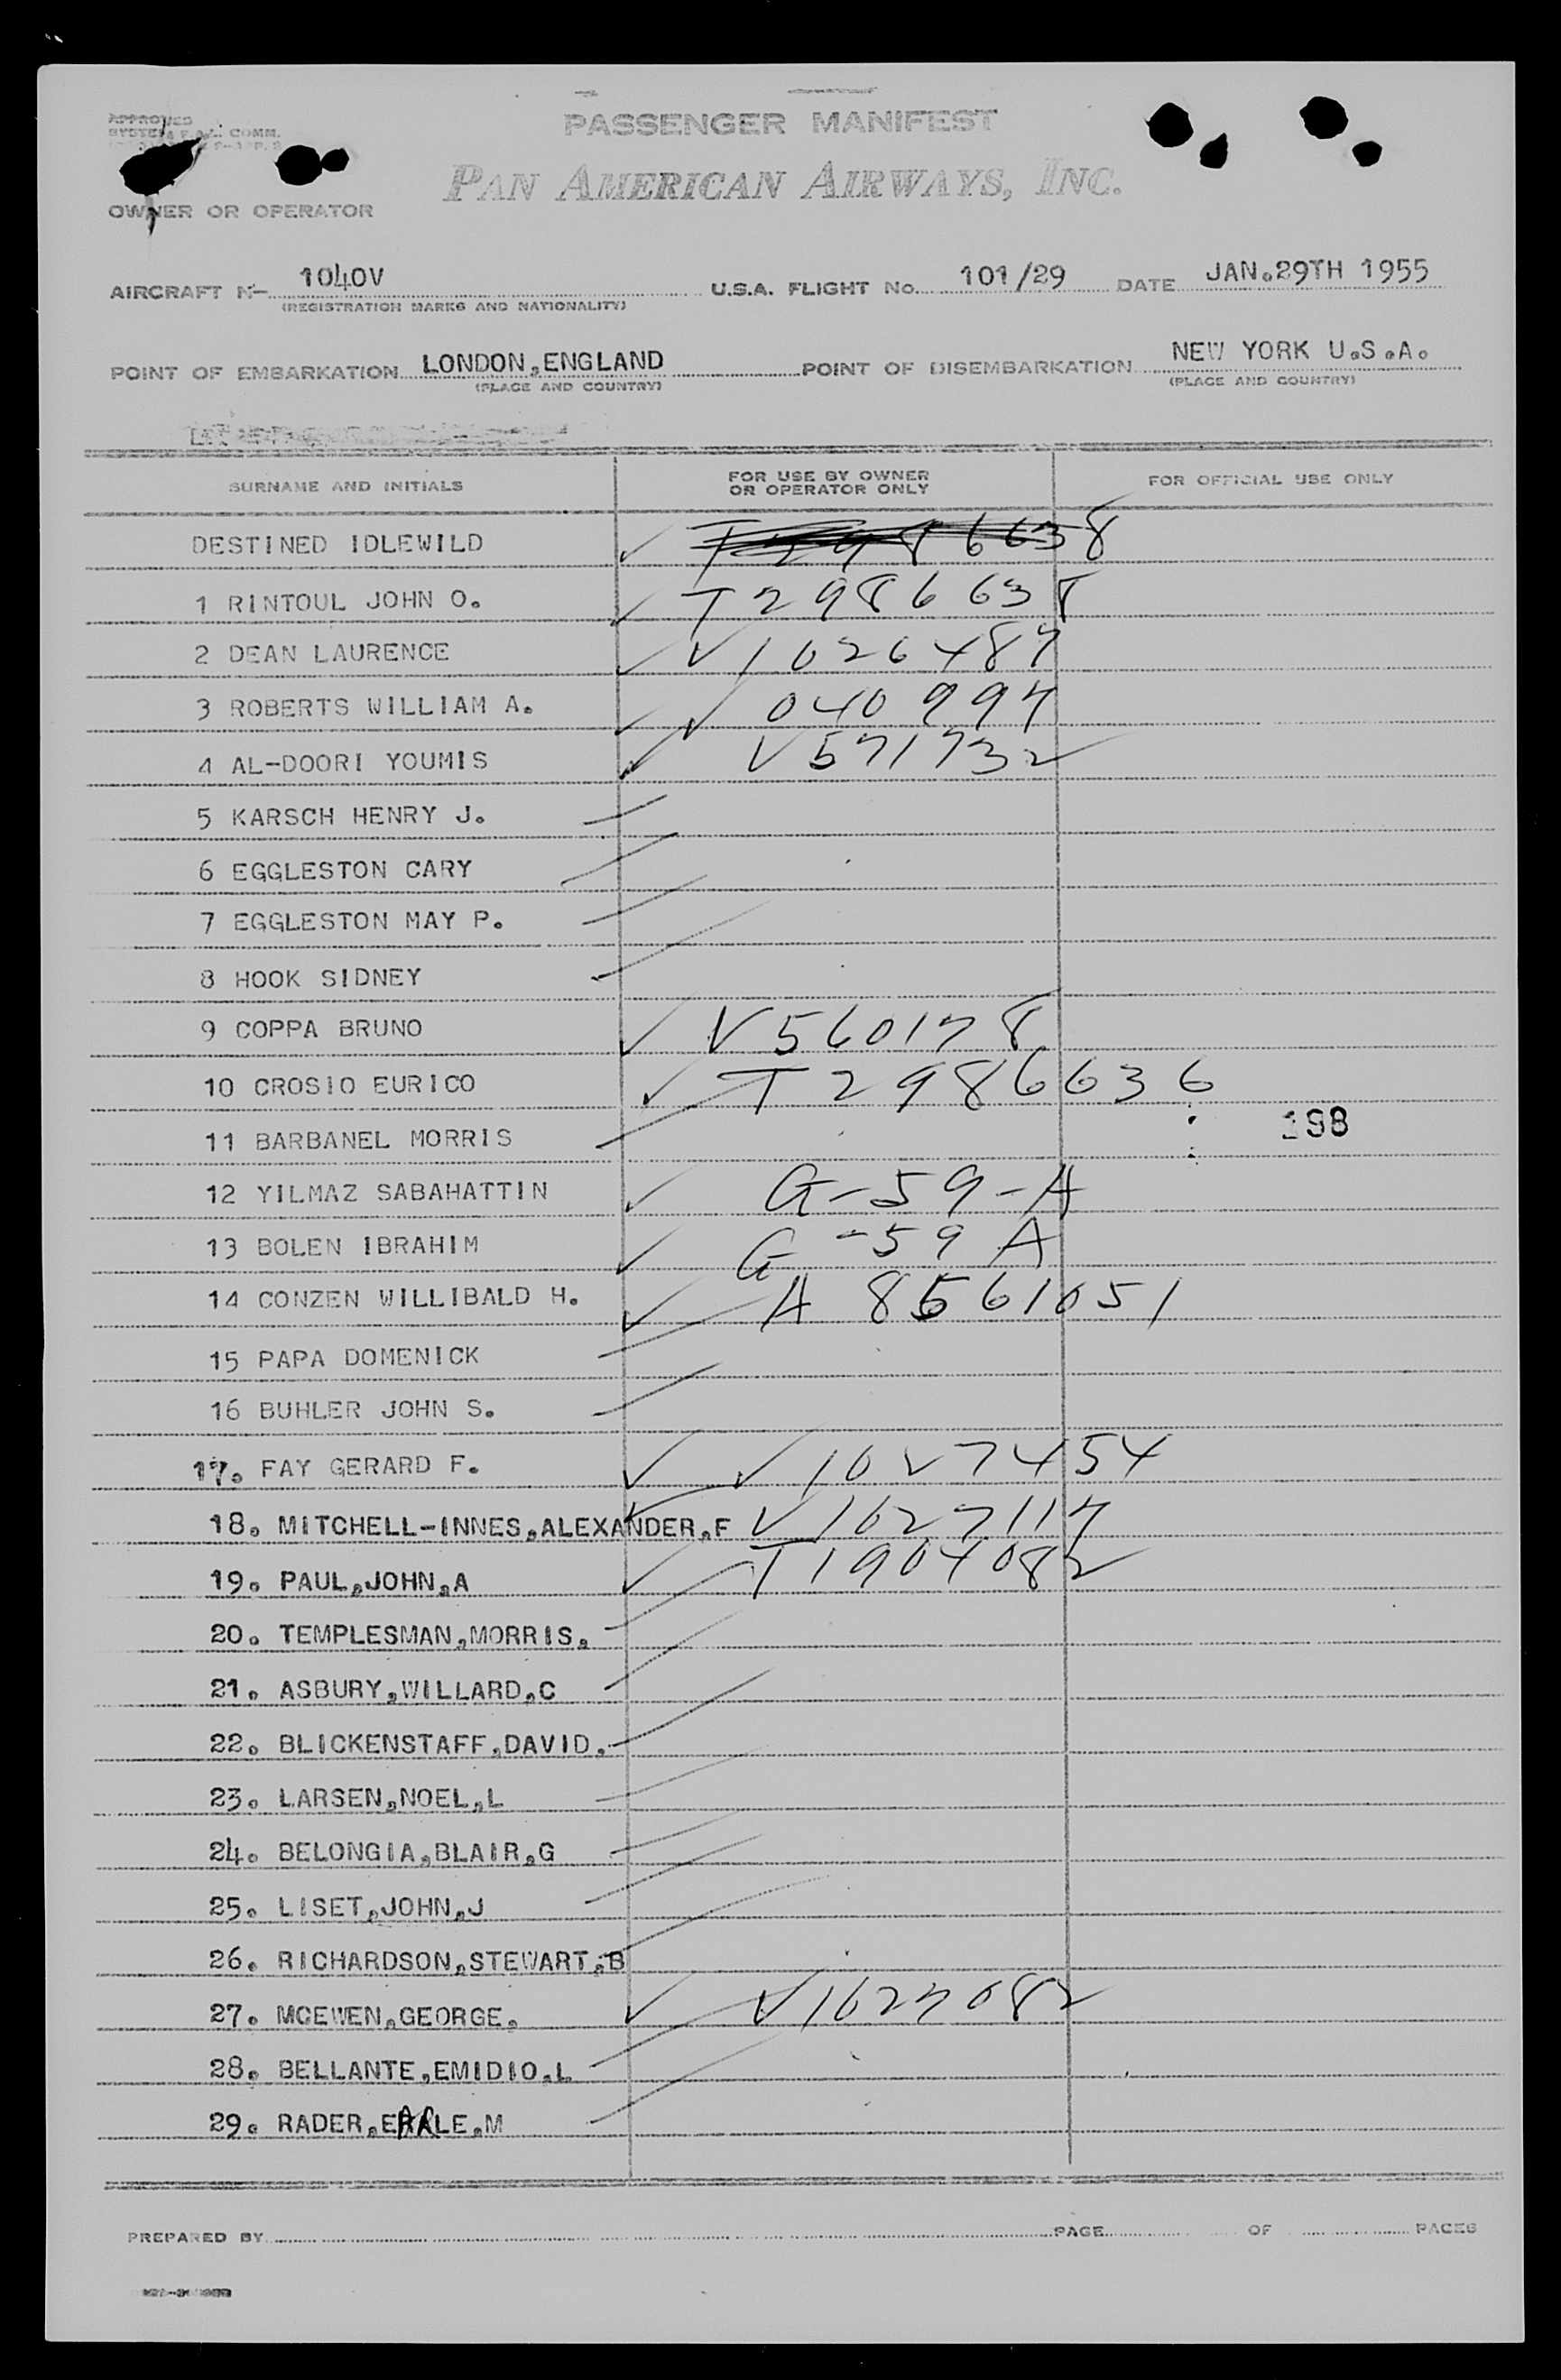 APPROVED
PASSENGER MANIFEST
PAN AMERICAN AIRWAYS, INC.
OWNER OR OPERATOR
AIRCRAFT No 1040V U.S.A. FLIGHT No. 101/29 DATE JAN.29TH 1955
(REGISTRATION MARKS AND NATIONALITY)
POINT OF EMBARKATION LONDON,ENGLAND POINT OF DISEMBARKATION NEW YORK U.S.A.
(PLACE AND COUNTRY) (PLACE AND COUNTRY)
SURNAME AND INITIALS FOR USE BY OWNER OR OPERATOR ONLY FOR OFFICIAL USE ONLY
DESTINED IDLEWILD T2986638
1 RINTOUL JOHN O. T2986638
2 DEAN LAURENCE V1026487
3 ROBERTS WILLIAM A. V 040997
4 AL-DOORI YOUMIS V571732
5 KARSCH HENRY J.
6 EGGLESTON CARY
7 EGGLESTON MAY P.
8 HOOK SIDNEY
9 COPPA BRUNO V560178
10 CROSIO EURICO T2986636
11 BARBANEL MORRIS 198
12 YILMAZ SABAHATTIN G-59-A
13 BOLEN IBRAHIM G-59 A
14 CONZEN WILLIBALD H. A 8561051
15 PAPA DOMENICK
16 BUHLER JOHN S.
17. FAY GERARD F. V1027454
18. MITCHELL-INNES,ALEXANDER,F V1027117
19. PAUL,JOHN,A T1904082
20. TEMPLESMAN,MORRIS.
21. ASBURY,WILLARD,C
22. BLICKENSTAFF,DAVID.
23. LARSEN,NOEL,L
24. BELONGIA,BLAIR,G
25. LISET,JOHN,J
26. RICHARDSON,STEWART,B
27. MCEWEN,GEORGE. V1027082
28. BELLANTE,EMIDIO,L
29. RADER,EARLE,M
PREPARED BY PAGE OF PAGES